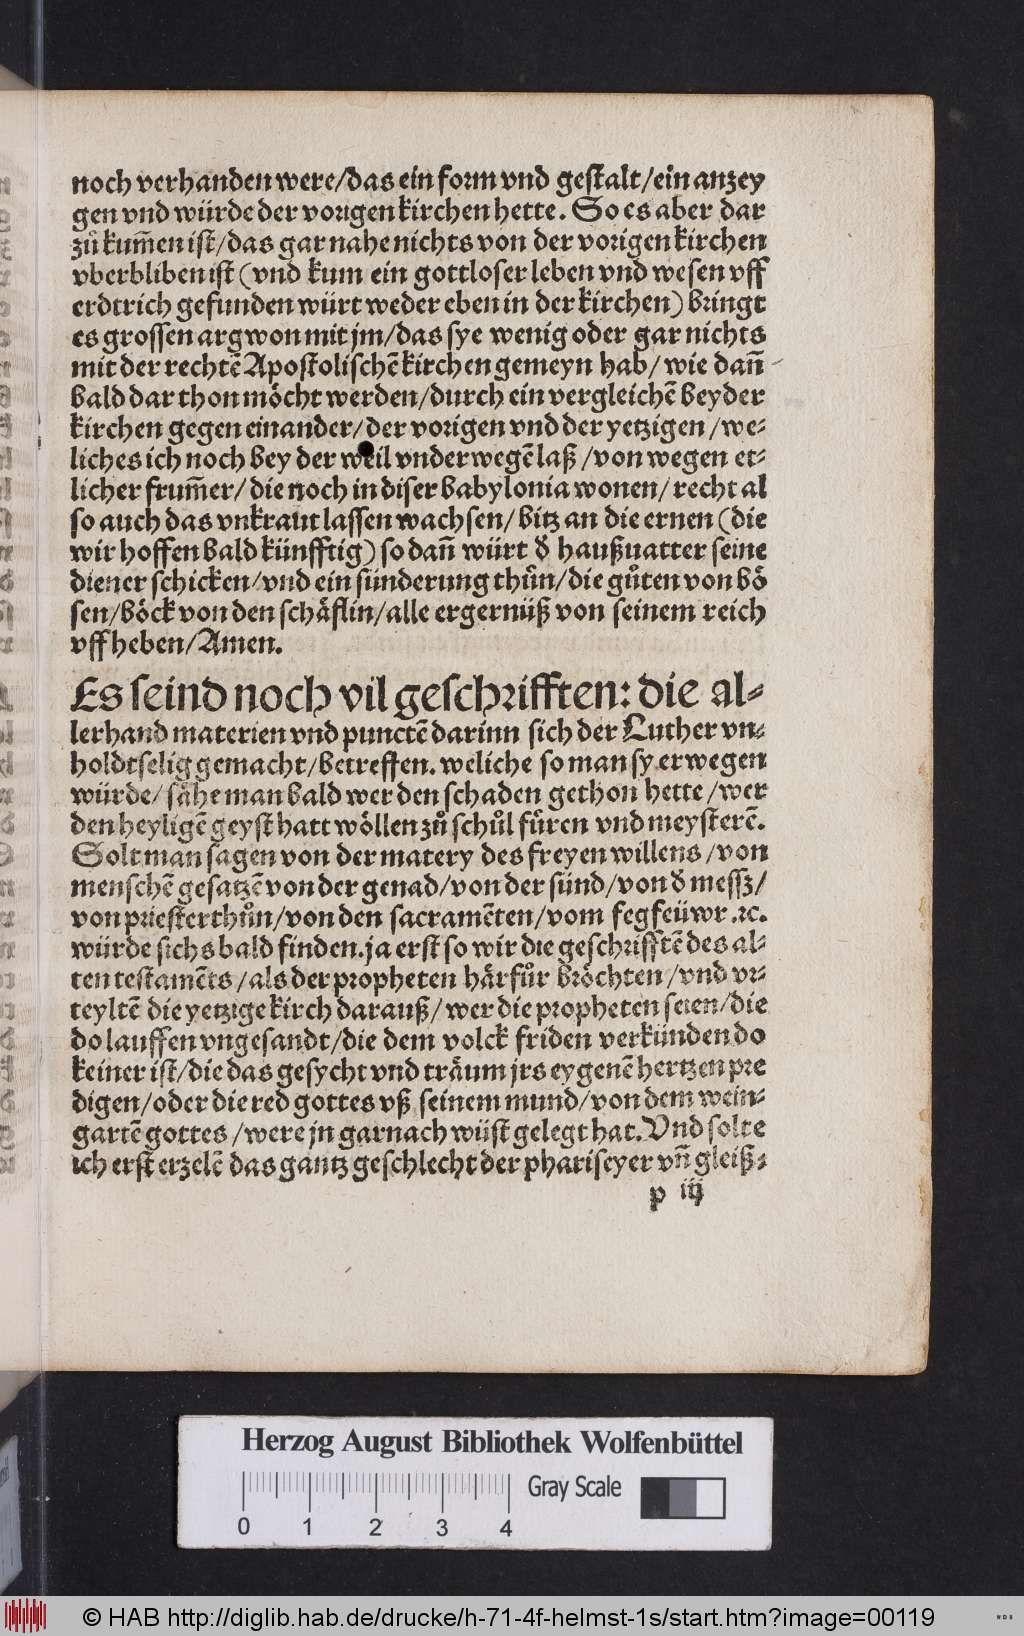 noch verhanden were/das ein form vnd gestalt/ein anzey
gen vnd würde der vorigen kirchen hette. So es aber dar
zů kum̄en ist/das gar nahe nichts von der vorigen kirchen
vberbliben ist (vnd kum ein gottloser leben vnd wesen vff
erdtrich gefunden würt weder eben in der kirchen) bringt
es grossen argwon mit jm/das sye wenig oder gar nichts
mit der rechtẽ Apostolischẽ kirchen gemeyn hab/ wie dañ
bald dar thon möcht werden/durch ein vergleichẽ beyder
kirchen gegen einander/der vorigen vnd der yetzigen/we⸗
liches ich noch bey der weil vnderwegẽ laß/von wegen et⸗
licher frum̄er/die noch in diser babylonia wonen/ recht al
so auch das vnkraut lassen wachsen/ bitz an die ernen (die
wir hoffen bald künfftig) so dañ würt d haußuatter seine
diener schicken/vnd ein sünderung thůn/die gůten von bö
sen/böck von den schäflin/alle ergernüß von seinem reich
vff heben/Amen.
Es seind noch vil geschrifften: die al⸗
lerhand materien vnd punctẽ darinn sich der Luther vn⸗
holdtselig gemacht/betreffen. weliche so man sy erwegen
würde/ sähe man bald wer den schaden gethon hette/wer
den heyligẽ geyst hatt wöllen zů schůl füren vnd meysterẽ.
Solt man sagen von der matery des freyen willens/von
menschẽ gesatzẽ von der genad/von der sünd/von d messz/
von priesterthůn/von den sacramẽten/vom fegfeüwr.ꝛc.
würde sichs bald finden. ja erst so wir die geschrifftẽ des al⸗
ten testamẽts/als der propheten härfůr bröchten/vnd vr⸗
teyltẽ die yetzige kirch darauß/wer die propheten seien/die
do lauffen vngesandt/die dem volck friden verkünden do
keiner ist/die das gesycht vnd träum jrs eygenẽ hertzen pre
digen/oder die red gottes vß seinem mund/von dem wein⸗
gartẽ gottes/were jn gar nach wüst gelegt hat. Vnd solte
ich erst erzelẽ das gantz geschlecht der phariseyer vñ gleiß⸗
p iij
Herzog August Bibliothek Wolfenbüttel
Gray Scale
0 1 2 3 4
© HAB http://diglib.hab.de/drucke/h-71-4f-helmst-1s/start.htm?image=00119
WDB